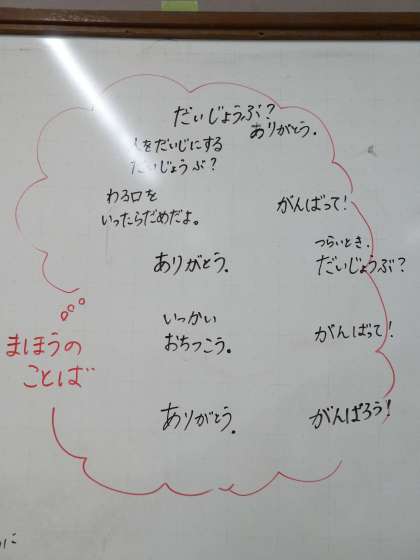 だいじょうぶ?
ありがとう。
をだいじにする
だいじょうぶ?
わる口を
いったらだめだよ。
がんばって!
つらいとき、
だいじょうぶ?
ありがとう。
いっかい
おちつこう。
がんばって!
ありがとう。
がんばろう!
まほうの
ことば